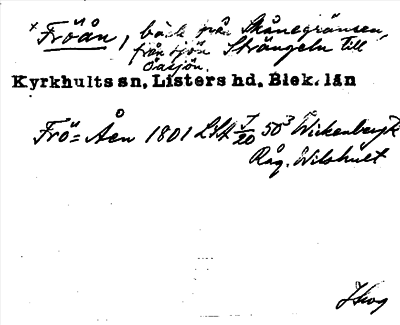 × Fröån, bäck från Skånegränsen,
från sjön Strängeln till
Öasjön.
Kyrkhults sn, Listers hd, Blek. län
Frö=Åen 1801 LSA 7/20 50³ Wickenbergk
Råg. Wilshult